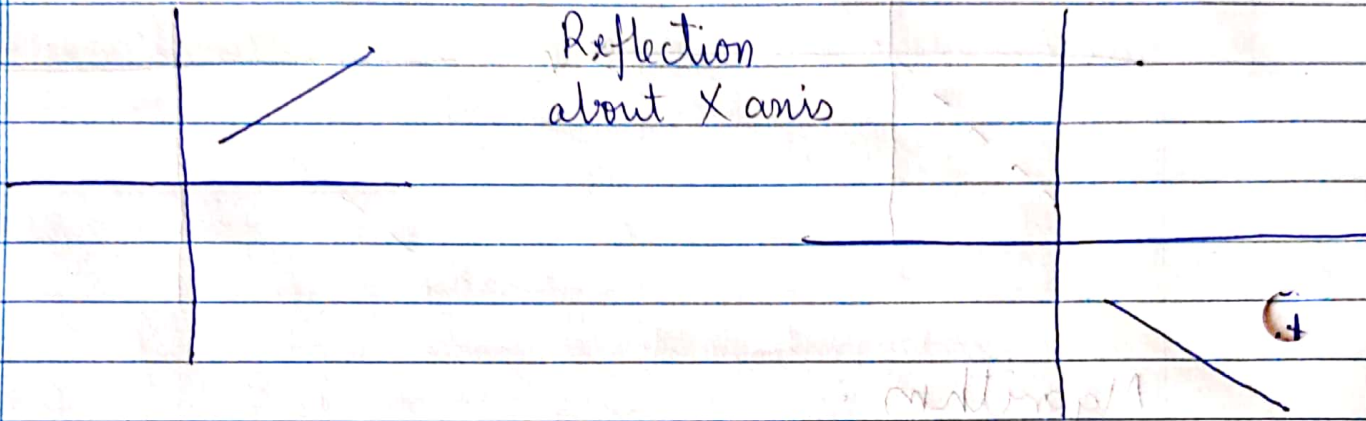 Reflection
about X anis